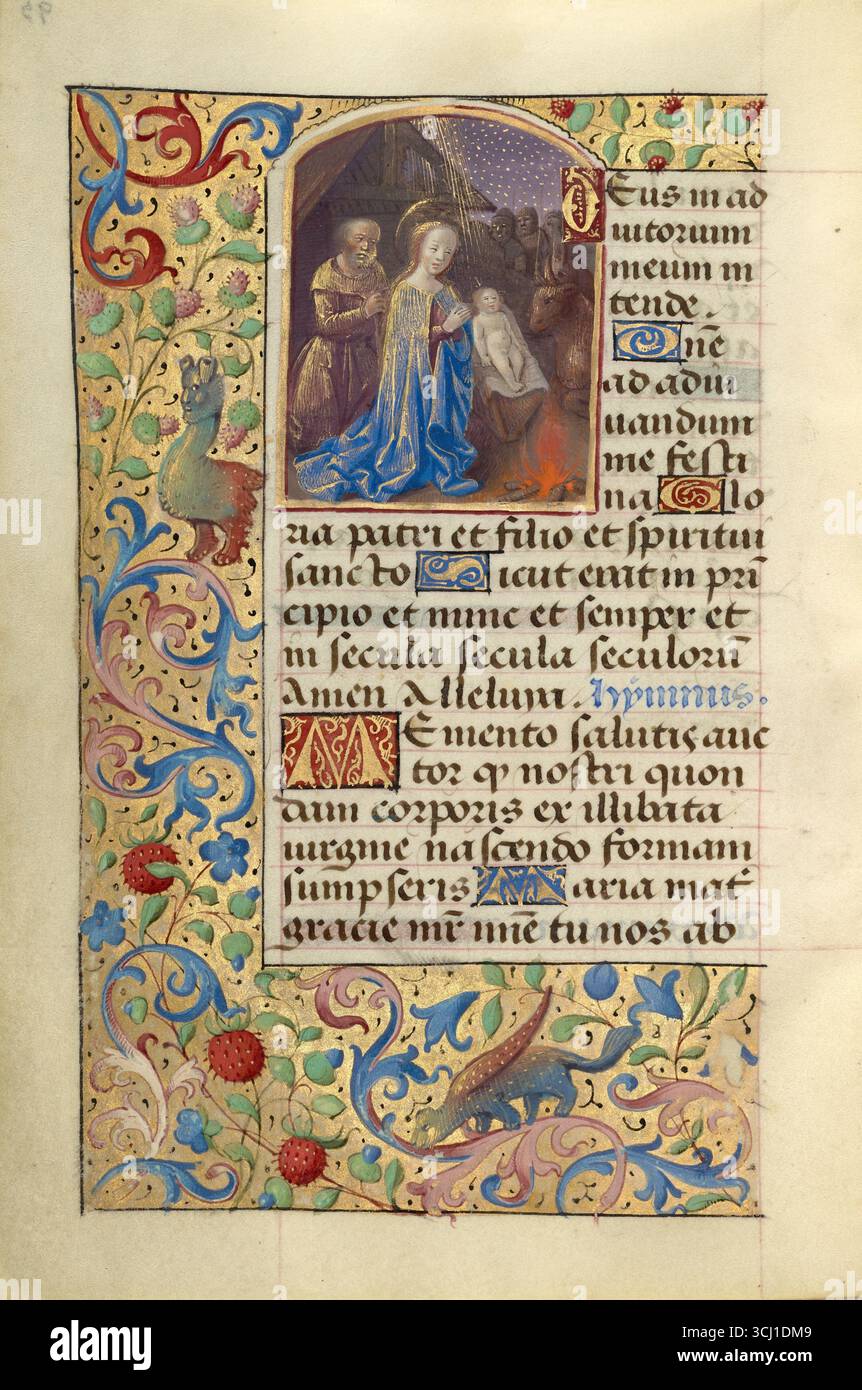 95
DEus in ad
iutorium
meum in
tende.
One
ad adiu
uandum
me festi
na Glo
ria patri et filio et spiritui
sancto Sicut erat in pri
cipio et nunc et semper et
in secula secula seculorū
Amen Alleluya. hymnus.
MEmento salutis auc
tor qͥ nostri quon
dam corporis ex illibata
uirgine nascendo formam
sumpseris Maria mat̄
gracie mr̄ mīe tu nos ab
alamy
Image ID: 3CJ1DM9
www.alamy.com